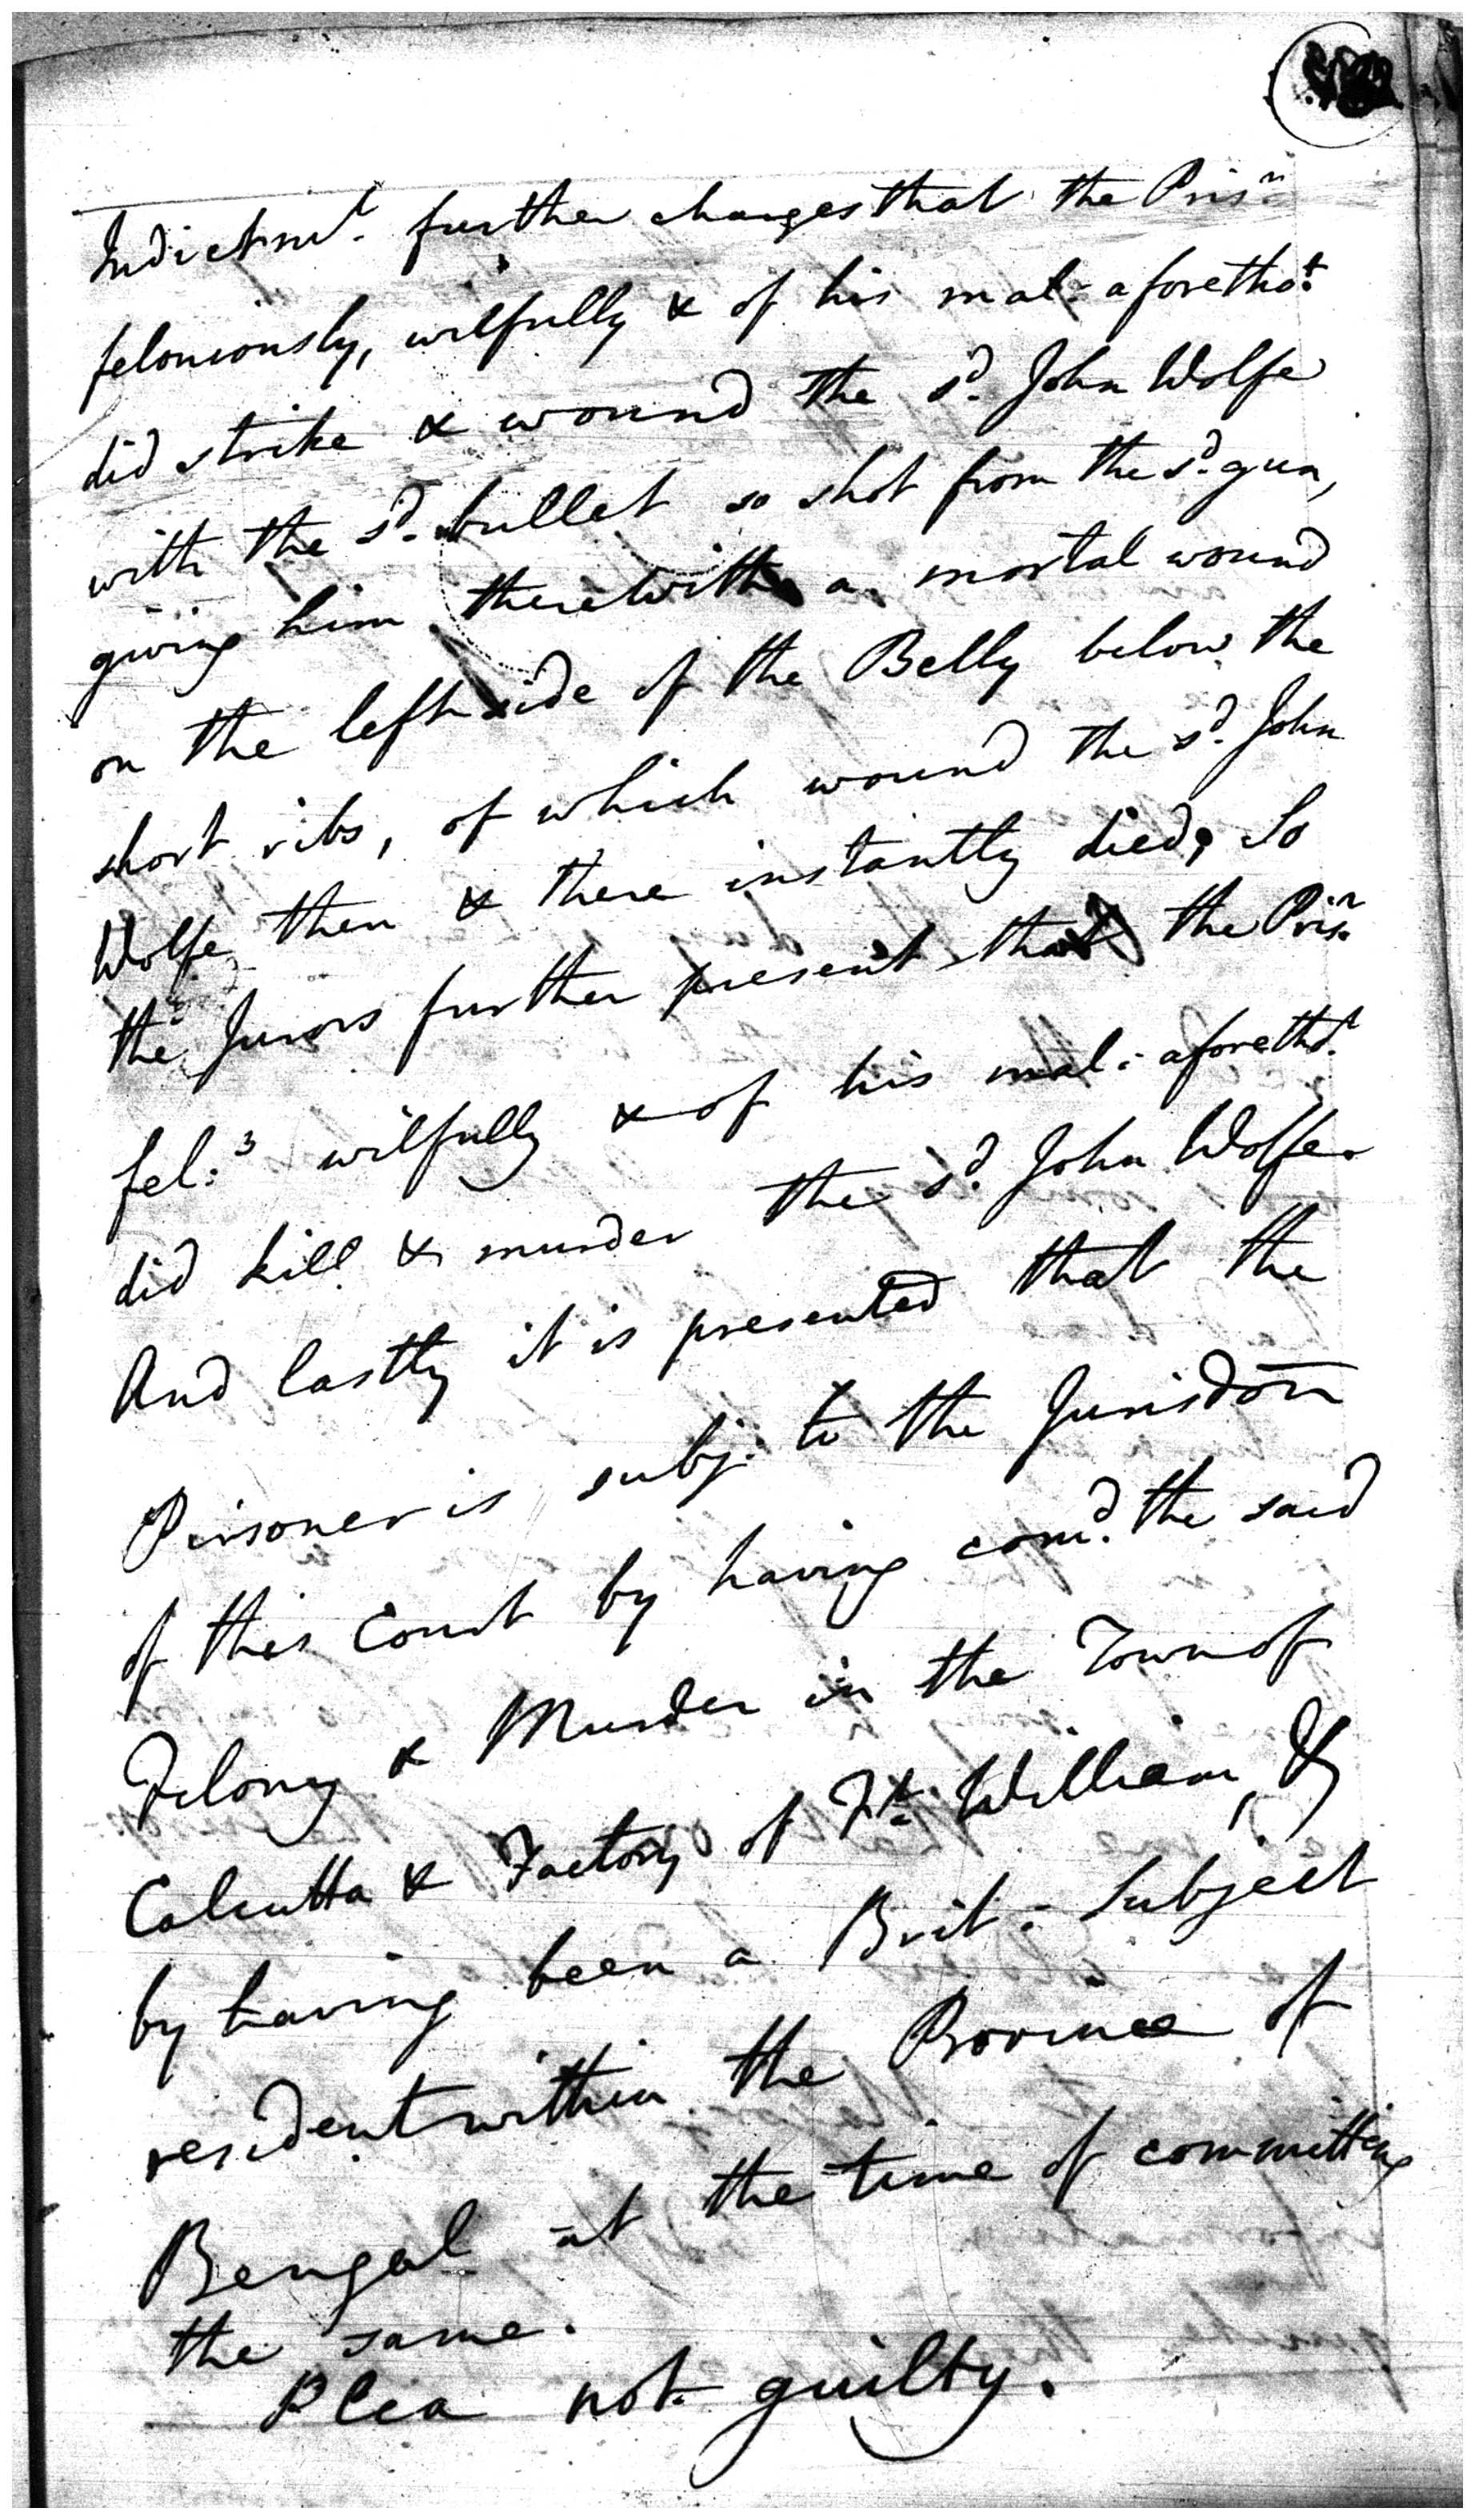 Indictmt. further charges that the Prisn
feloniously, wilfully & of his mal: aforetho:t
did strike & wound the sd. John Wolfe
with the sd. bullet so shot from the sd. gun,
giving him therewith a mortal wound
on the left side of the Belly below the
short ribs, of which wound the sd. John
Wolfe then & there instantly died; So
the Jurors further present that the Prisn.
fel:y wilfully & of his mal: aforethot.
did kill & murder the sd. John Wolfe.
And lastly it is presented that the
Prisoner is subj: to the Jurisdon
of this Court by having comd. the said
Felony & Murder in the Town of
Calcutta & Factory of Ft. William, &
by having been a Brit: Subject
resident within the Province of
Bengal at the time of committing
the same.
Plea not guilty.